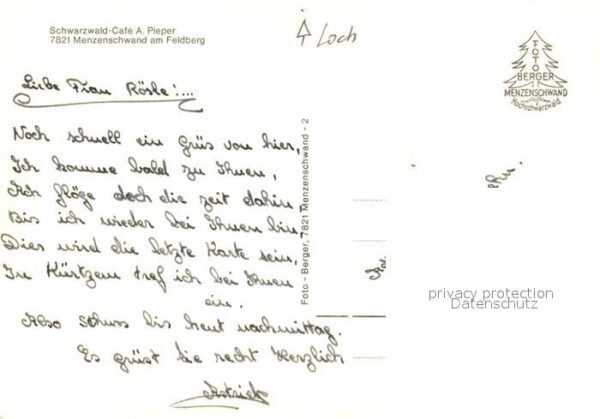 Schwarzwald-Café A. Pieper
7821 Menzenschwand am Feldberg
Loch
Liebe Frau Rösle!...
Noch schnell ein Grüs von hier,
Ich komme bald zu Ihnen,
Ach flöge doch die zeit dahin
Bis ich wieder bei Ihnen bin,
Dies wird die letzte Karte sein,
In Kürtzem tref ich bei Ihnen
ein.
Also stuss bis heut nachmittag.
Es grüst Sie recht Herzlich
Foto - Berger, 7821 Menzenschwand - 2
FOTO
BERGER
MENZENSCHWAND
Hochschwarzwald
privacy protection
Datenschutz